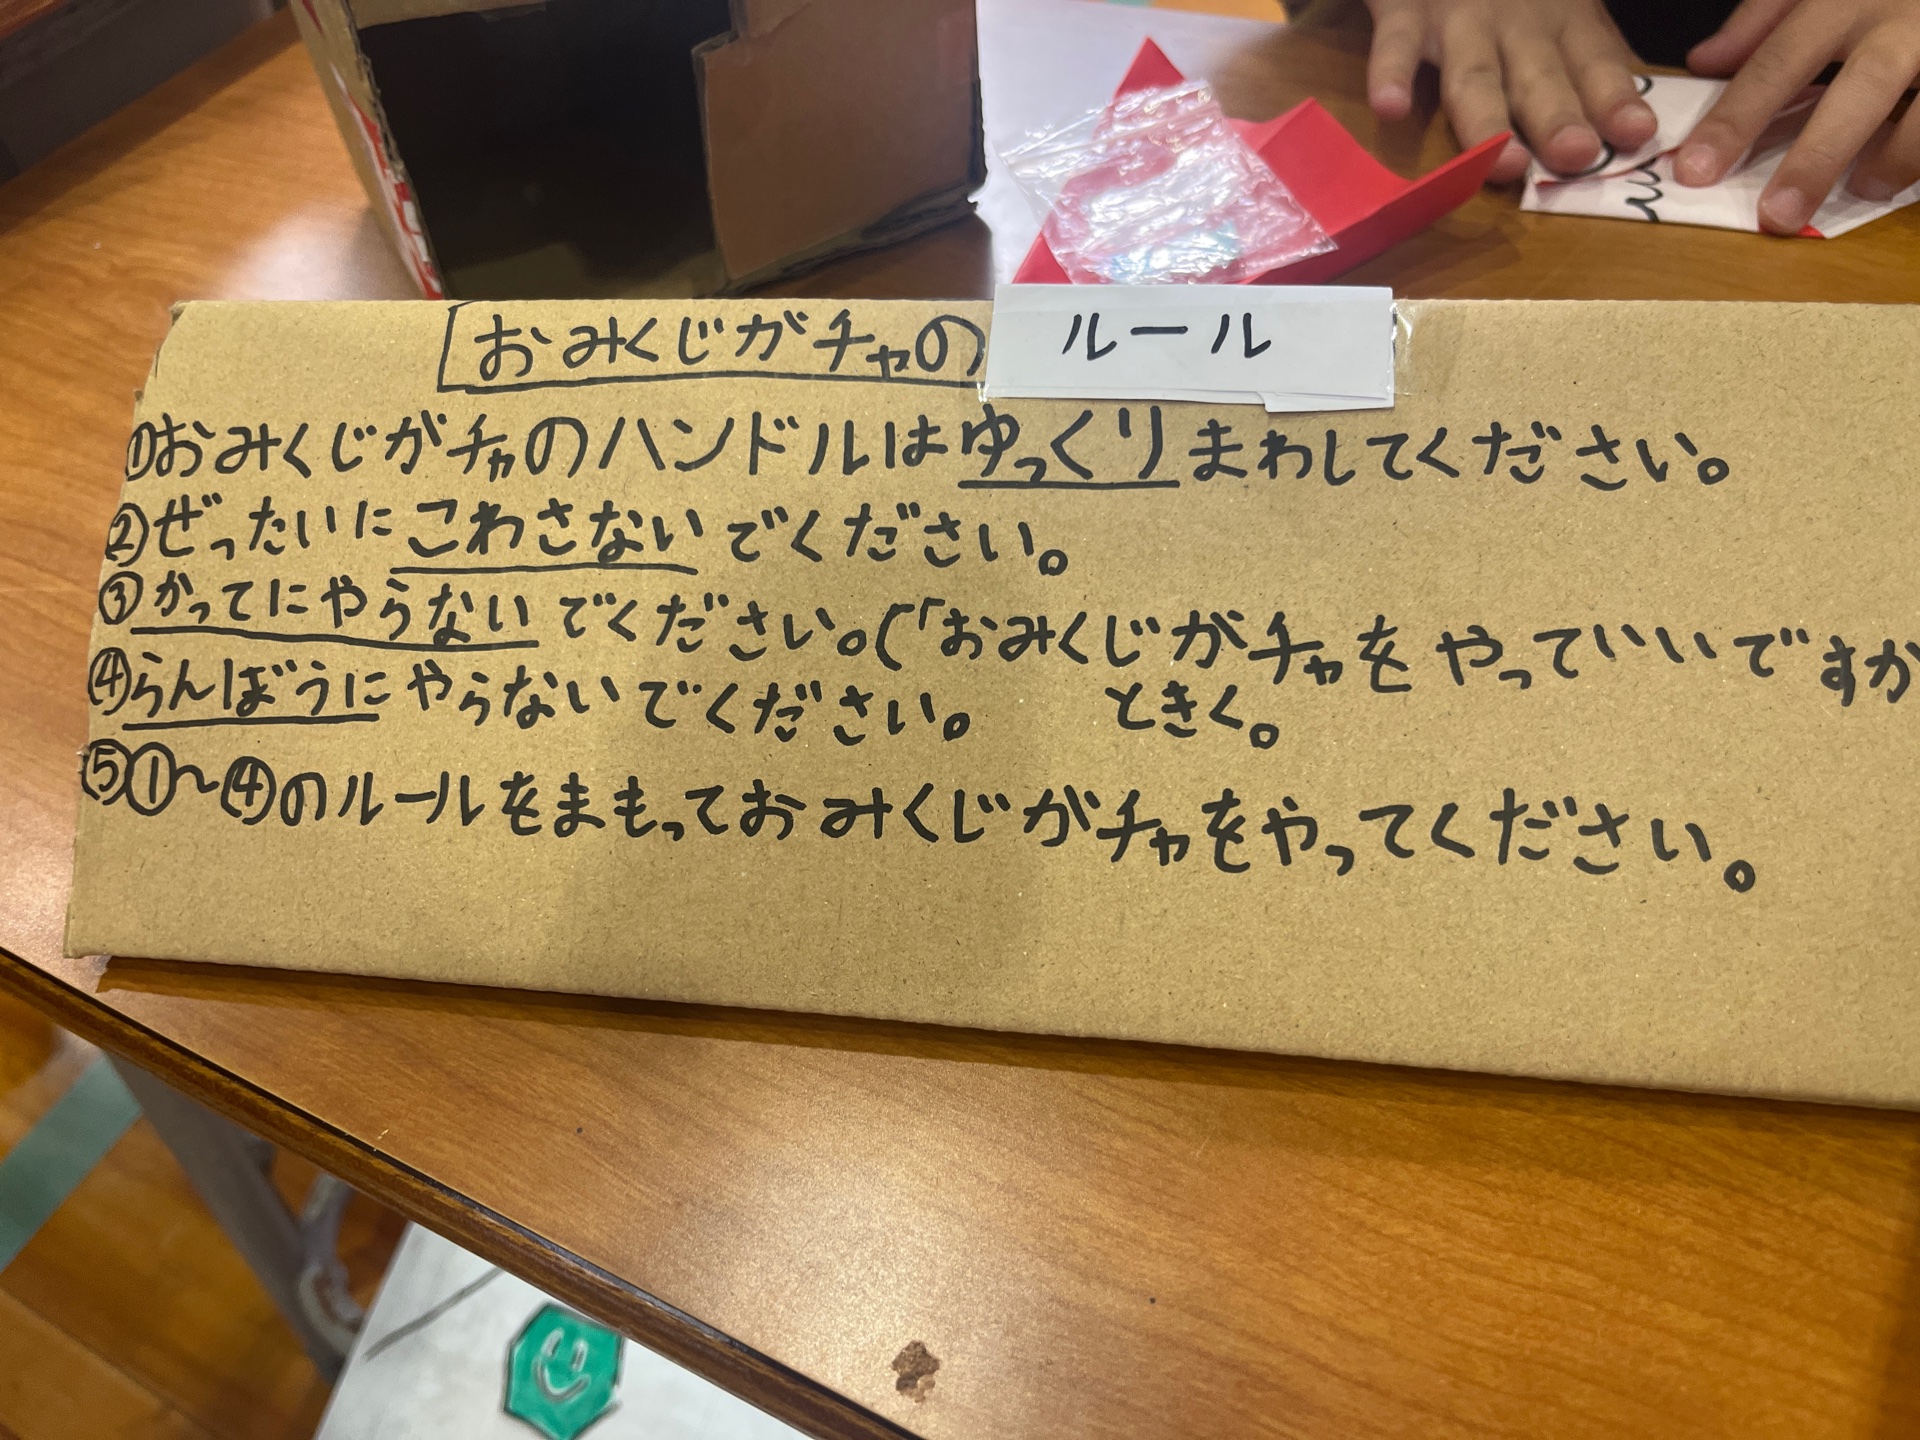 おみくじガチャの ルール
①おみくじガチャのハンドルはゆっくりまわしてください。
②ぜったいにこわさないでください。
③かってにやらないでください。(「おみくじガチャをやっていいですか
ときく。
④らんぼうにやらないでください。
⑤①~④のルールをまもっておみくじガチャをやってください。